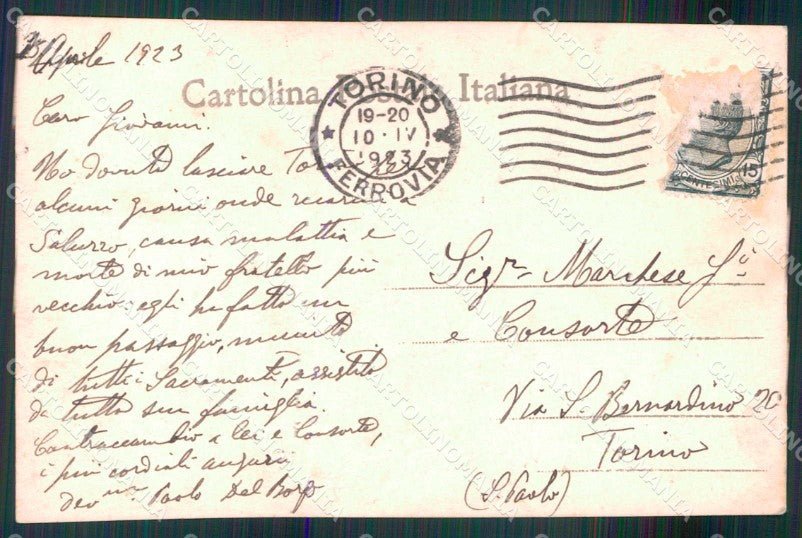 Aprile 1923
Cartolina Postale Italiana
Caro Giovanni.
Ho dovuto lasciare To
alcuni giorni onde recarmi a
Saluzzo, causa malattia e
morte di mio fratello più
vecchio: egli ha fatto un
buon passaggio, munito
di tutti i Sacramenti, assistito
da tutta sua famiglia.
Contraccambio a lei e Consorte,
i più cordiali auguri
dev.mo Paolo Del Borgo
TORINO
19-20
10·IV
1923
FERROVIA
CENTESIMI 15
Sigr Marchese Gi
e Consorte
Via S. Bernardino 20
Torino
(S. Paolo)
CARTOLINOMANIA